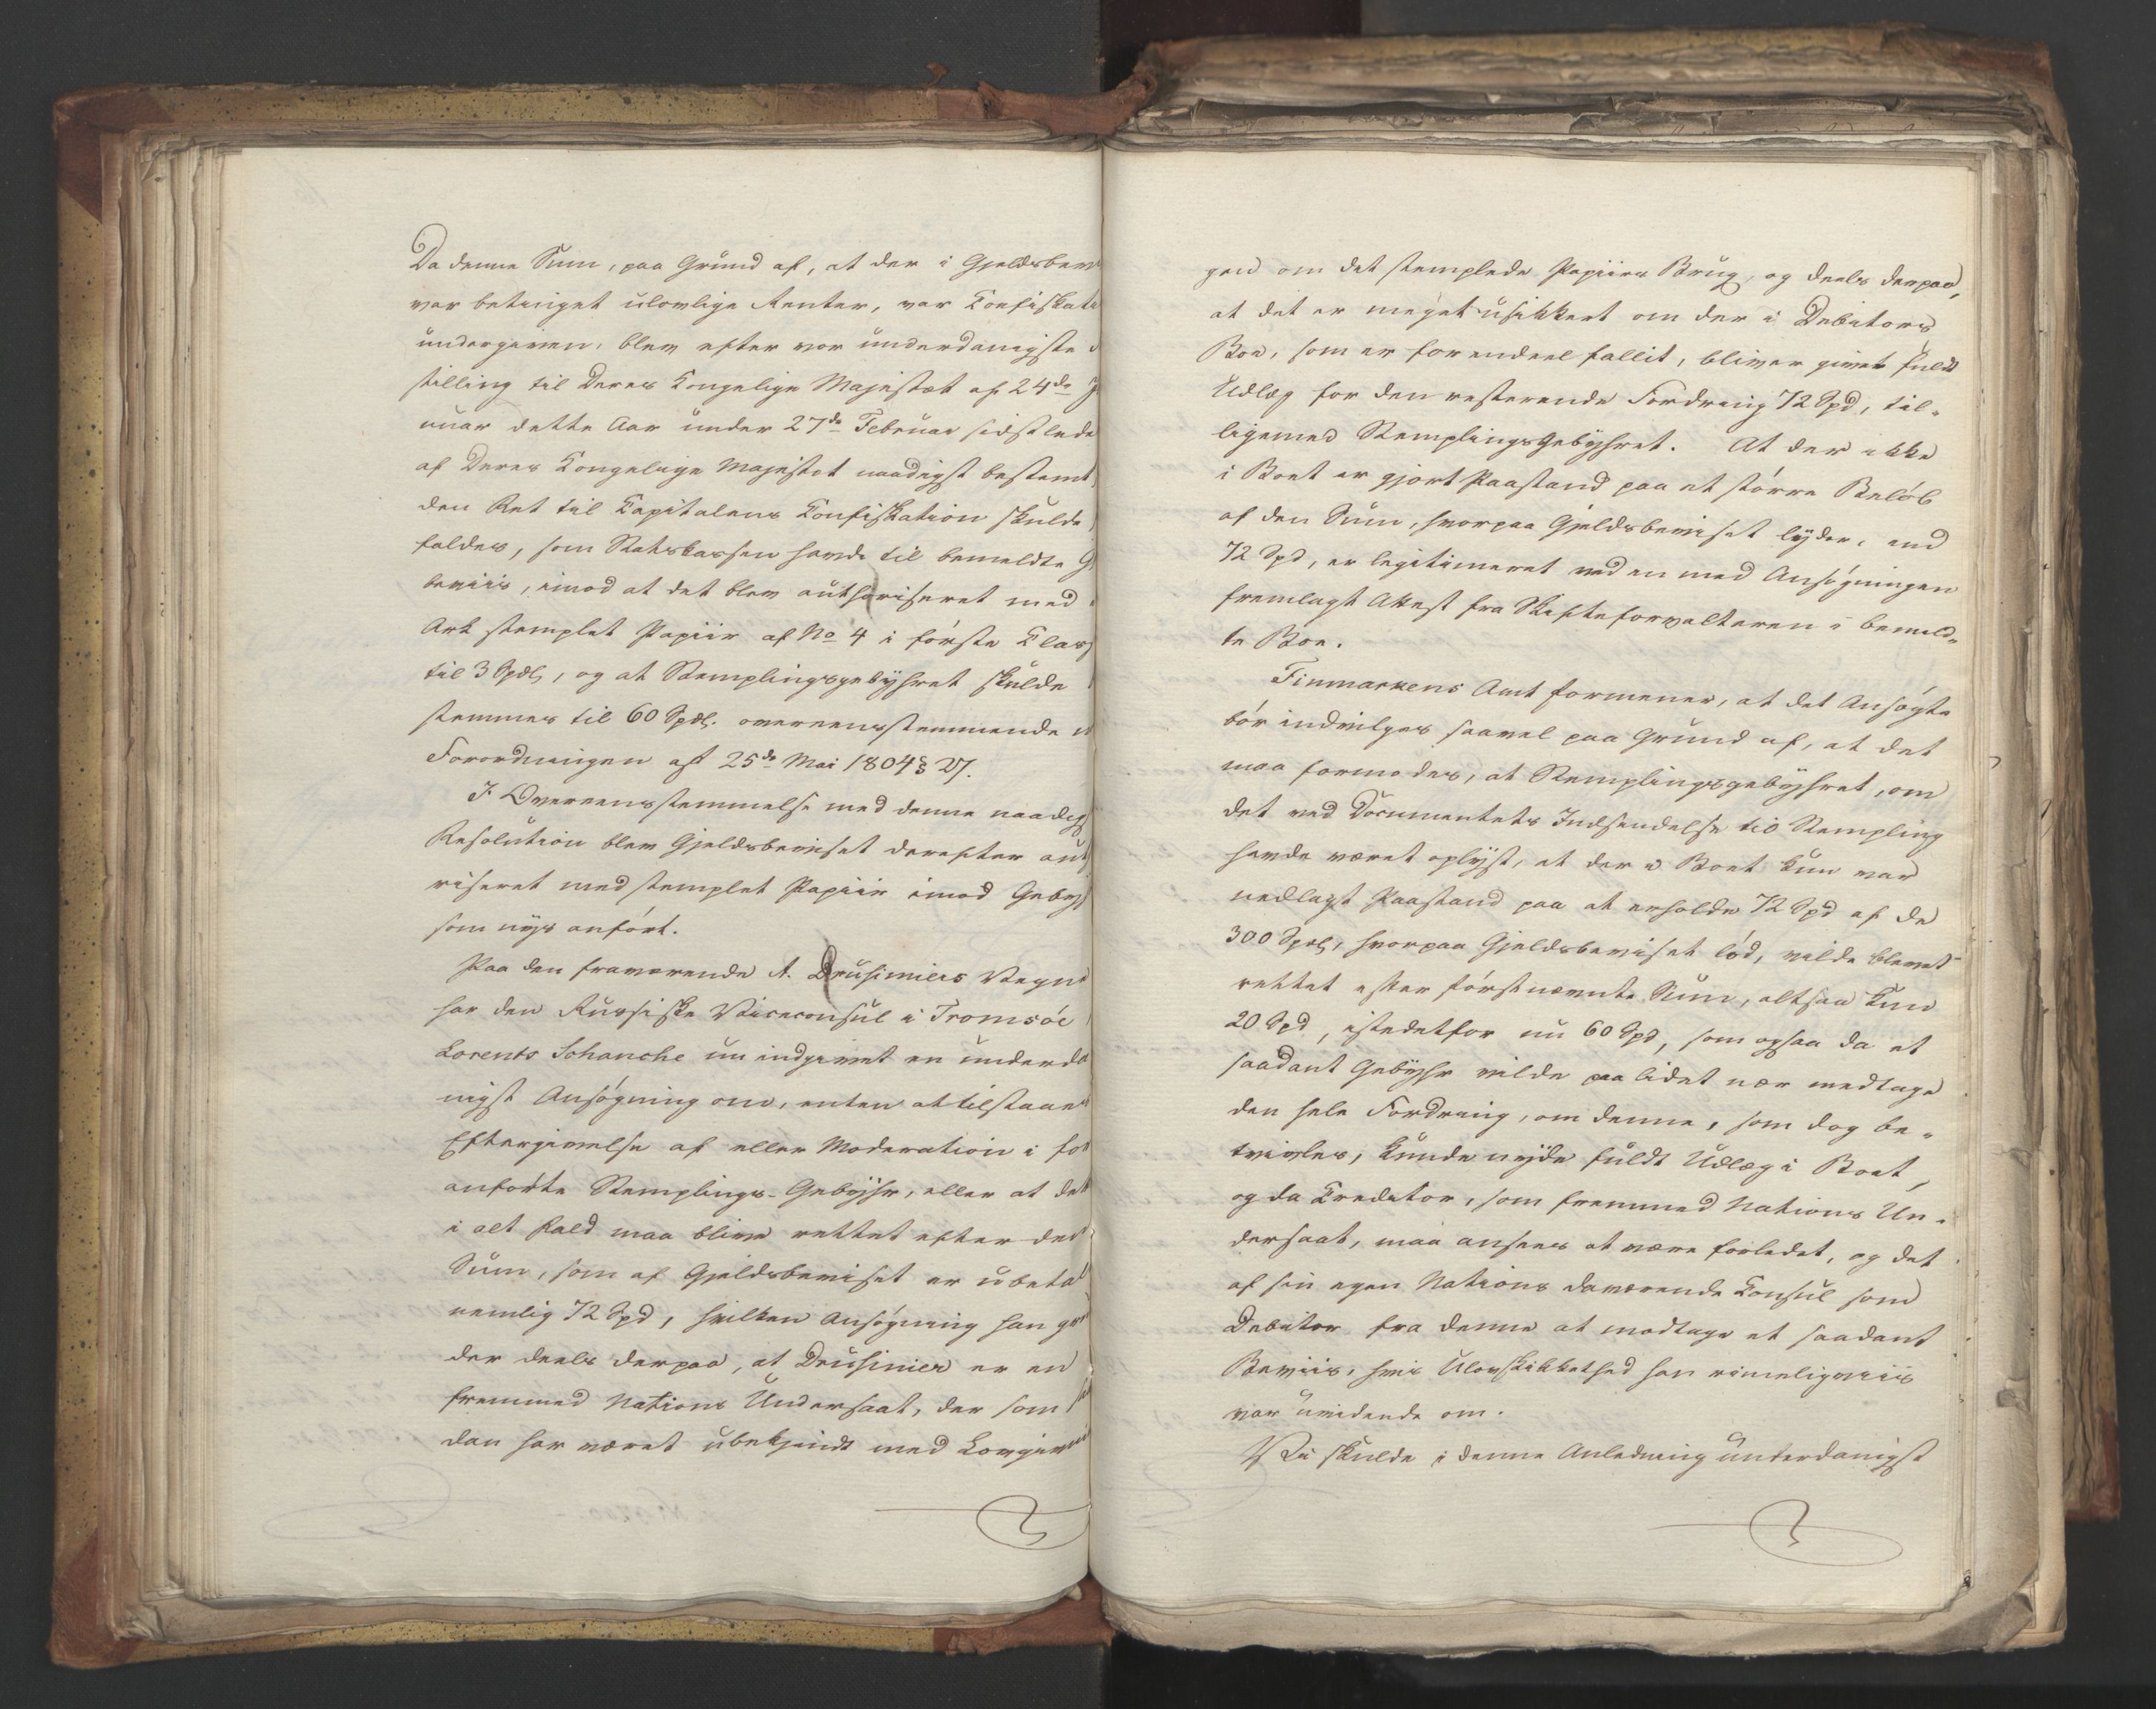 Da denne Sum, paa Grund af, at der i Gjeldsbevi
var betinget ulovlige Renter, var Confiskati
undergiven, blev efter vor underdanigste
stilling til Deres Kongelige Majestæt af 24de J
nuar dette Aar under 27de Februar sidstlede
af Deres Kongelige Majestæt naadigst bestemt,
den Ret til Kapitalens Confiskation skulde
faldes, som Statskassen havde til bemeldte G
beviis, imod at det blev authoriseret med
Ark stemplet Papiir af No 4 i første Class
til 3 Spdl, og at Stemplingsgebyhret skulde
stemmes til 60 Spdl. overeensstemmende
Forordningen af 25de Mai 1804 § 27.
I Overeensstemmelse med denne naadig
Resolution blev Gjeldsbeviset derefter aut
riseret med stemplet Papiir imod Geby
som nys anført.
Paa den fraværende A. Drusiniers Vegne
har den Russiske Viceconsul i Tromsöe
Lorents Schanche nu indgivet en underda
nigst Ansøgning om, enten at tilstaaes
Eftergivelse af eller Moderation i for
anførte Stemplings-Gebyhr, eller at det
i alt Fald maa blive rettet efter den
Sum, som af Gjeldsbeviset er ubetal
nemlig 72 Spd, hvilken Ansøgning han gr
der deels derpaa, at Drusinier er en
fremmed Nations Undersaat, der som
dan har været ubekjendt med Lovgivn
gen om det stemplede Papiirs Brug, og deels derpaa,
at det er meget usikkert om der i Debitors
Boe, som er forendeel fallit, bliver givet fuldt
Udlæg for den resterende Fordring 72 Spd, til-
ligemed StemplingsGebyhret. At der ikke
i Boet er gjort Paastand paa et større Beløb
af den Sum, hvorpaa Gjeldsbeviset lyder, end
72 Spd, er legitimeret ved en med Ansøgningen
fremlagt Attest fra Skifteforvalteren i bemeld-
te Boe.
Finmarkens Amt formener, at det Ansøgte
bør indvilges saavel paa Grund af, at det
maa formodes, at Stemplingsgebyhret, om
det ved Documentets Indsendelse til Stempling
havde været oplyst, at der i Boet kun var
nedlagt Paastand paa at erholde 72 Spd af de
300 Spdl, hvorpaa Gjeldsbeviset lød, vilde blevet
rettet efter førstnævnte Sum, altsaa kun
20 Spd, istedetfor nu 60 Spd, som ogsaa da et
saadant Gebyhr vilde paa lidet nær medtage
den hele Fordring, om denne, som dog be-
tvivles, kunde nyde fuldt Udlæg i Boet,
og da Creditor, som fremmed Nations Un-
dersaat, maa ansees at være forledet, og det
af sin egen Nations daværende Consul som
Debitor fra denne at modtage et saadant
Beviis, hvis Ulovskikkethed han rimeligviis
var uvidende om.
Vi skulde i denne Anledning underdanigst